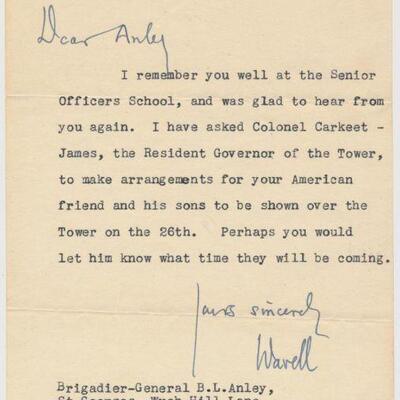 Dear Anley
I remember you well at the Senior
Officers School, and was glad to hear from
you again. I have asked Colonel Carkeet -
James, the Resident Governor of the Tower,
to make arrangements for your American
friend and his sons to be shown over the
Tower on the 26th. Perhaps you would
let him know what time they will be coming.
Yours sincerely
Wavell
Brigadier-General B.L.Anley,
St Georges, Wych Hill Lane